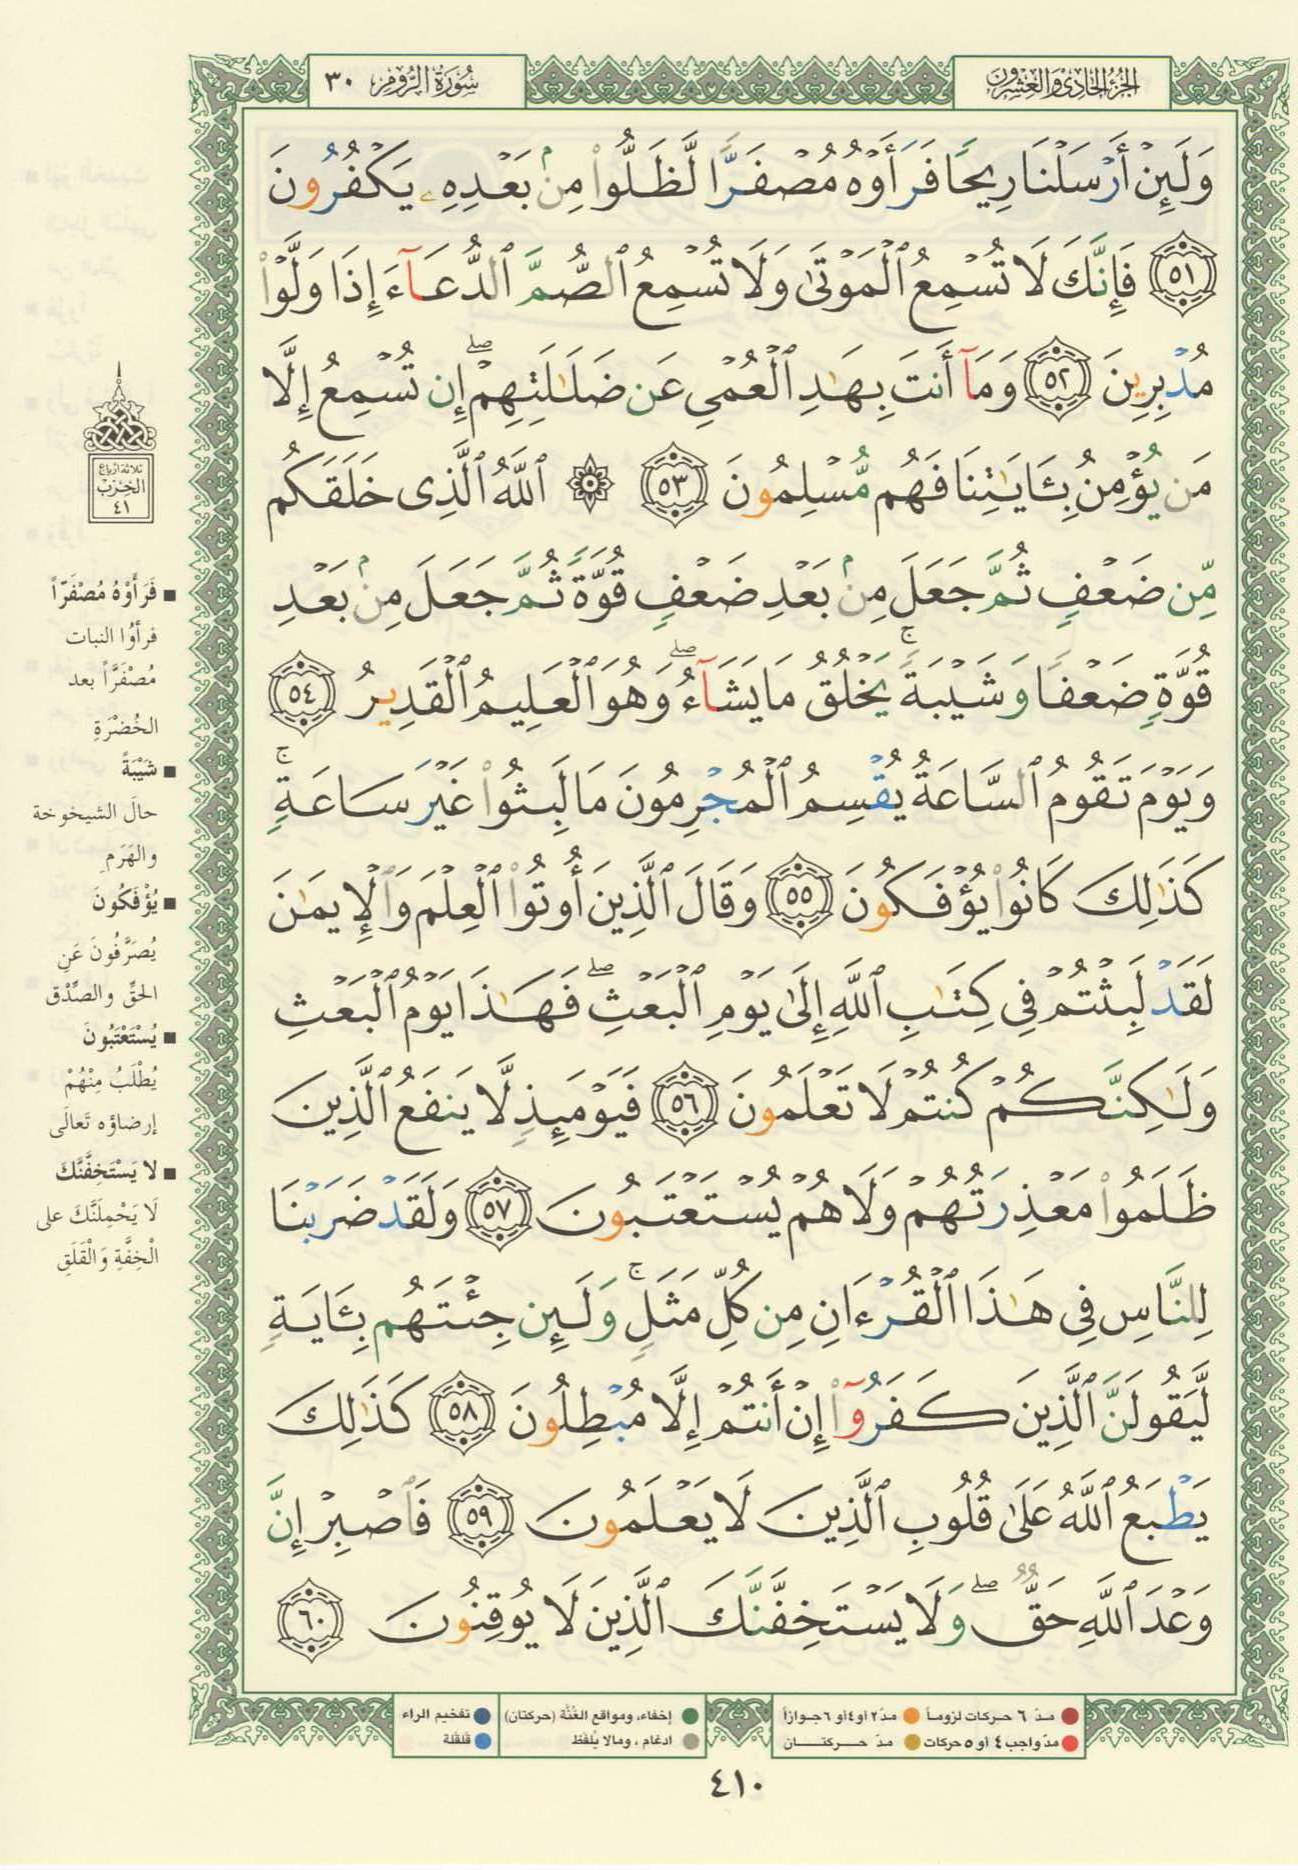 الجزء الحادي والعشرون
سورة الروم ٣٠
وَلَئِنْ أَرْسَلْنَا رِيحًا فَرَأَوْهُ مُصْفَرًّا لَّظَلُّوا۟ مِنۢ بَعْدِهِۦ يَكْفُرُونَ
٥١ فَإِنَّكَ لَا تُسْمِعُ ٱلْمَوْتَىٰ وَلَا تُسْمِعُ ٱلصُّمَّ ٱلدُّعَآءَ إِذَا وَلَّوْا۟
مُدْبِرِينَ ٥٢ وَمَآ أَنتَ بِهَـٰدِ ٱلْعُمْىِ عَن ضَلَـٰلَتِهِمْ ۖ إِن تُسْمِعُ إِلَّا
مَن يُؤْمِنُ بِـَٔايَـٰتِنَا فَهُم مُّسْلِمُونَ ٥٣ ۞ ٱللَّهُ ٱلَّذِى خَلَقَكُم
مِّن ضَعْفٍ ثُمَّ جَعَلَ مِنۢ بَعْدِ ضَعْفٍ قُوَّةً ثُمَّ جَعَلَ مِنۢ بَعْدِ
قُوَّةٍ ضَعْفًا وَشَيْبَةً ۚ يَخْلُقُ مَا يَشَآءُ ۖ وَهُوَ ٱلْعَلِيمُ ٱلْقَدِيرُ ٥٤
وَيَوْمَ تَقُومُ ٱلسَّاعَةُ يُقْسِمُ ٱلْمُجْرِمُونَ مَا لَبِثُوا۟ غَيْرَ سَاعَةٍ ۚ
كَذَٰلِكَ كَانُوا۟ يُؤْفَكُونَ ٥٥ وَقَالَ ٱلَّذِينَ أُوتُوا۟ ٱلْعِلْمَ وَٱلْإِيمَـٰنَ
لَقَدْ لَبِثْتُمْ فِى كِتَـٰبِ ٱللَّهِ إِلَىٰ يَوْمِ ٱلْبَعْثِ ۖ فَهَـٰذَا يَوْمُ ٱلْبَعْثِ
وَلَـٰكِنَّكُمْ كُنتُمْ لَا تَعْلَمُونَ ٥٦ فَيَوْمَئِذٍ لَّا يَنفَعُ ٱلَّذِينَ
ظَلَمُوا۟ مَعْذِرَتُهُمْ وَلَا هُمْ يُسْتَعْتَبُونَ ٥٧ وَلَقَدْ ضَرَبْنَا
لِلنَّاسِ فِى هَـٰذَا ٱلْقُرْءَانِ مِن كُلِّ مَثَلٍ ۚ وَلَئِن جِئْتَهُم بِـَٔايَةٍ
لَّيَقُولَنَّ ٱلَّذِينَ كَفَرُوٓا۟ إِنْ أَنتُمْ إِلَّا مُبْطِلُونَ ٥٨ كَذَٰلِكَ
يَطْبَعُ ٱللَّهُ عَلَىٰ قُلُوبِ ٱلَّذِينَ لَا يَعْلَمُونَ ٥٩ فَٱصْبِرْ إِنَّ
وَعْدَ ٱللَّهِ حَقٌّ ۖ وَلَا يَسْتَخِفَّنَّكَ ٱلَّذِينَ لَا يُوقِنُونَ ٦٠
ثلاثة أرباع
الحزب
٤١
■ فَرَأَوْهُ مُصْفَرّاً
فرأوُا النبات
مُصْفَرّاً بعد
الخُضْرَةِ
■ شَيْبَةً
حالَ الشيخوخة
والهَرَمِ
■ يُؤْفَكُونَ
يُصَرَّفُونَ عَنِ
الحقِّ والصِّدْق
■ يُسْتَعْتَبُونَ
يُطْلَبُ مِنْهُمْ
إرضاؤه تَعالَى
■ لا يَسْتَخِفَّنَّكَ
لَا يَحْمِلَنَّكَ على
الْخِفَّةِ وَالْقَلَقِ
مدّ ٦ حركات لزوماً
مدّ ٢ أو ٤ أو ٦ جوازاً
مدّ واجب ٤ أو ٥ حركات
مدّ حركتان
إخفاء، ومواقع الغُنَّة (حركتان)
ادغام، ومالا يُلفَظ
تفخيم الراء
قلقلة
٤١٠